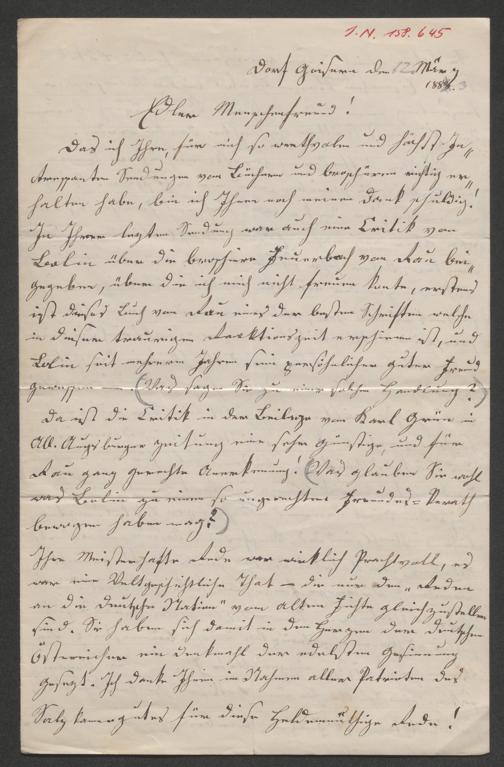 I.N. 158.645
Dorf Goisern den 12 März
1883.
Edler Menschenfreund!
Das ich Ihre, für mich so werthvolen und höchst In„
teressanten Sendungen von Büchern und broschüren richtig er„
halten habe, bin ich Ihnen noch meinen Dank schuldig!
In Ihrer lezten Sendung war auch eine Critik von
Bolin über die broschüre Feuerbach von Rau bei„
gegeben, über die ich mich nicht freuen konte, erstens
ist dieses Buch von Rau eines der besten Schriften welche
in dieser traurigen Reaktionszeit erschienen ist, und
Bolin seit mehrern Jahren sein persöhnlicher guter Freund
gewessen — (Was sagen Sie zu einer solchen Handlung?)
Da ist die Critik in der Beilage von Karl Grün in
All. Augsburger zeitung eine sehr günstige, und für
Rau ganz gerechte Anerkenung! (Was glauben Sie wohl
was Bolin zu einen so ungerechten Freundes-Verath
bewogen haben mag?)
Ihre Meisterhafte Rede war wirklich Prachtvoll, es
war eine Weltgeschichtliche That — die nur den „Reden
an die Deutsche Nation" vom alten Fichte gleichzustellen
sind. Sie haben sich damit in den Herzen der deutschen
Östereicher ein denkmahl der edelsten Gesinnung
gesezt. Ich danke Ihnen in Nahmen aller Patrioten des
Salzkamergutes für diese Heldenmüthige Rede!